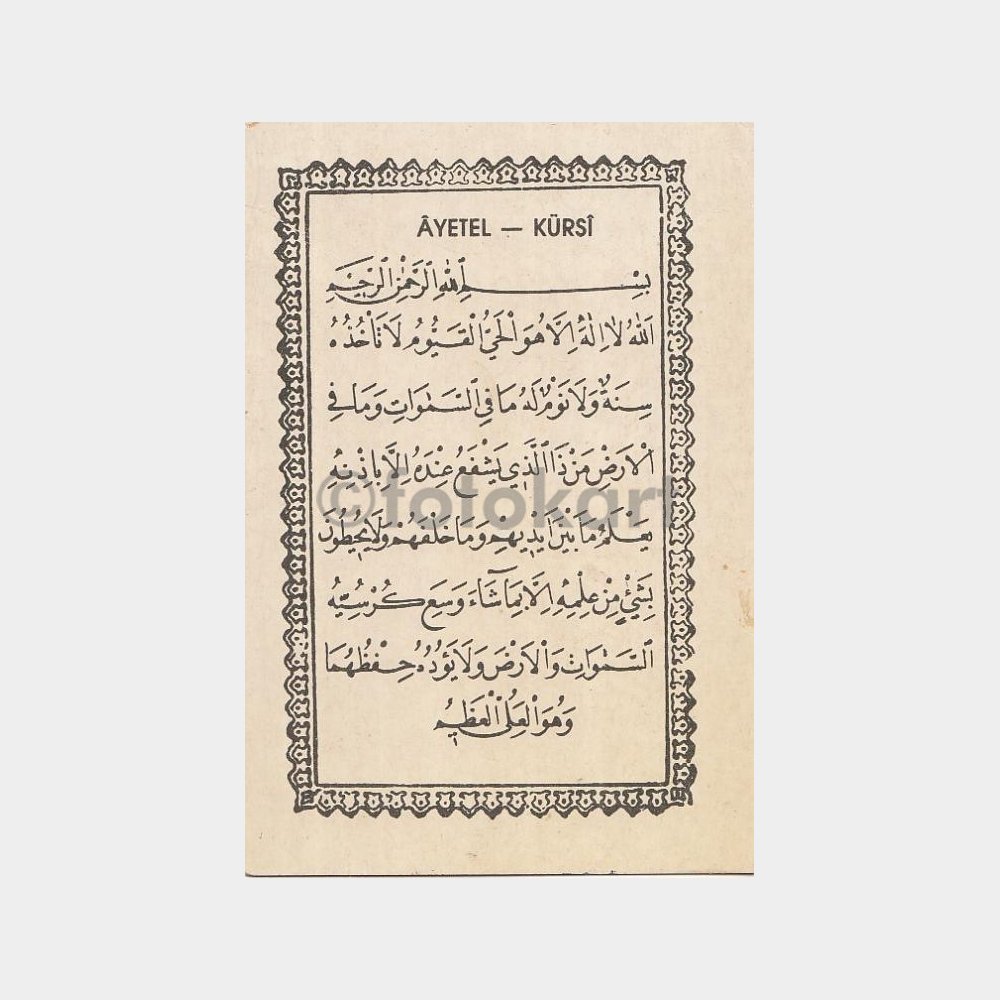 ÂYETEL — KÜRSÎ
بِسْمِ اللّٰهِ الرَّحْمٰنِ الرَّحِيمِ
اَللّٰهُ لَا اِلٰهَ اِلَّا هُوَ اَلْحَيُّ الْقَيُّومُ لَا تَأْخُذُهُ
سِنَةٌ وَلَا نَوْمٌ لَهُ مَا فِي السَّمٰوَاتِ وَمَا فِي
الْاَرْضِ مَنْ ذَا الَّذِي يَشْفَعُ عِنْدَهُ اِلَّا بِاِذْنِهِ
يَعْلَمُ مَا بَيْنَ اَيْدِيهِمْ وَمَا خَلْفَهُمْ وَلَا يُحِيطُونَ
بِشَيْءٍ مِنْ عِلْمِهِ اِلَّا بِمَا شَآءَ وَسِعَ كُرْسِيُّهُ
السَّمٰوَاتِ وَالْاَرْضَ وَلَا يَؤُدُهُ حِفْظُهُمَا
وَهُوَ الْعَلِيُّ الْعَظِيمُ
©fotokart